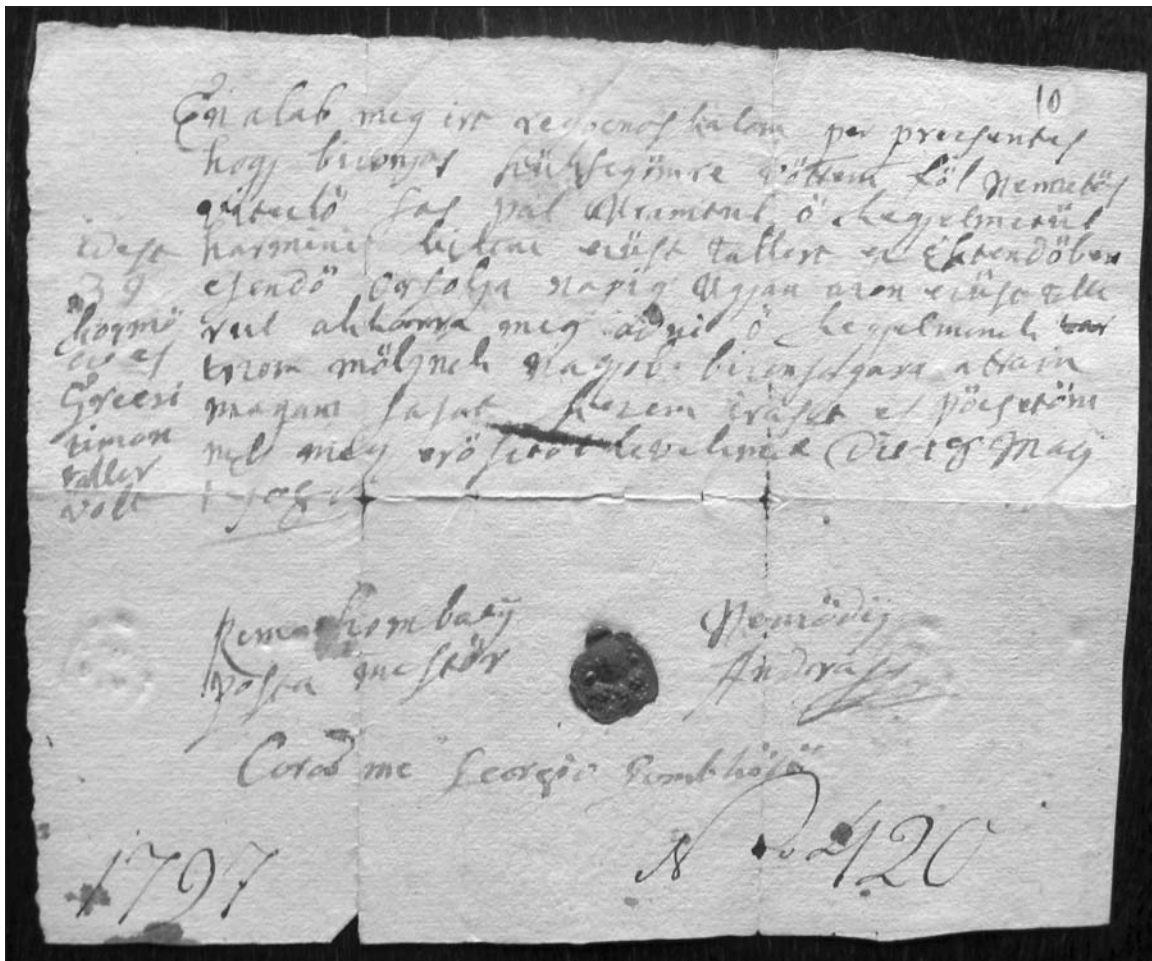 10
Én alab meg irt recognoskalom per presentes
hogj bizonjos szüksegömre vöttem föl Nemetös
vitezlö Sos Pal Uramtul ö kegjelmetül
harmincz kilenc ezüst tallert ez Esztendöben
esendö Orsolja napig Ugjan azon ezüst talle
rul akkorra meg adni ö kegjelminek tar
tozom möljnek nagjob bizonsagara attam
magam sajat kezem irasat es pöcsetöm
mel meg erösitöt levelemet Die 18 Maij
idest
39
körmö
czi es
Greczi
timon
taller
volt
Rima Szombaty
posta mestör
Nemödij
Andras
Coram me Georgio Gombkötö
1797
No 420